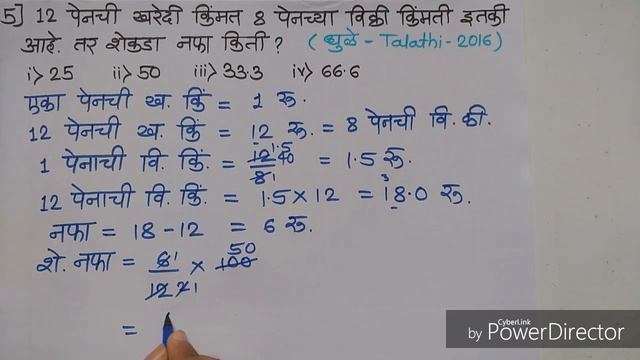 5] 12 पेनची खरेदी किंमत 8 पेनच्या विक्री किंमती इतकी
आहे. तर शेकडा नफा किती? (धुळे - Talathi - 2016)
i> 25 ii> 50 iii> 33.3 iv> 66.6
एका पेनची ख. किं = 1 रू.
12 पेनची ख. किं = 12 रू. = 8 पेनची वि. की.
1 पेनाची वि. किं. = 12/8 = 1.5 रू.
12 पेनाची वि. किं. = 1.5 × 12 = 18.0 रू.
नफा = 18 - 12 = 6 रू.
शे. नफा = 6/12 × 100 50
=
by CyberLink PowerDirector